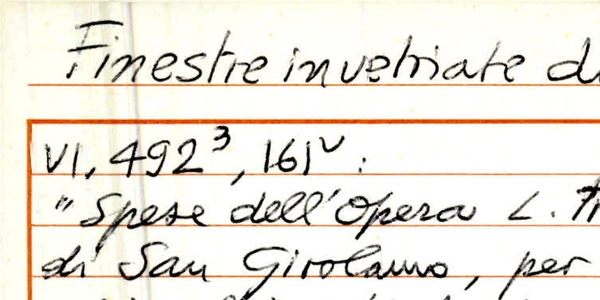 Finestre invetriate di
VI, 492³, 161ᵛ :
"Spese dell'Opera L.
di San Girolamo, per